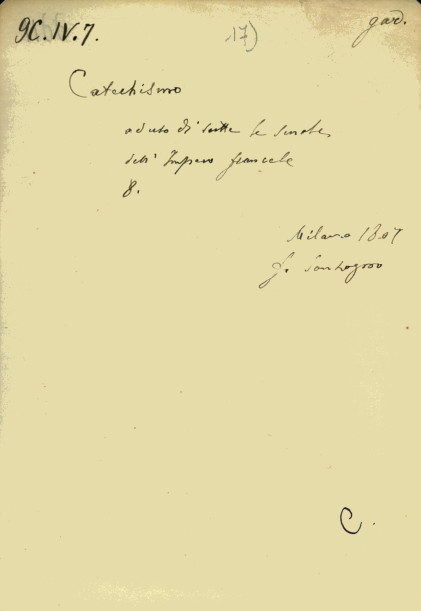 9C.IV.7.
17)
gad.
Catechismo
ad uso di tutte le scuole
dell' Impero francese
8.
Milano 1807
f. Sonzogno
C.